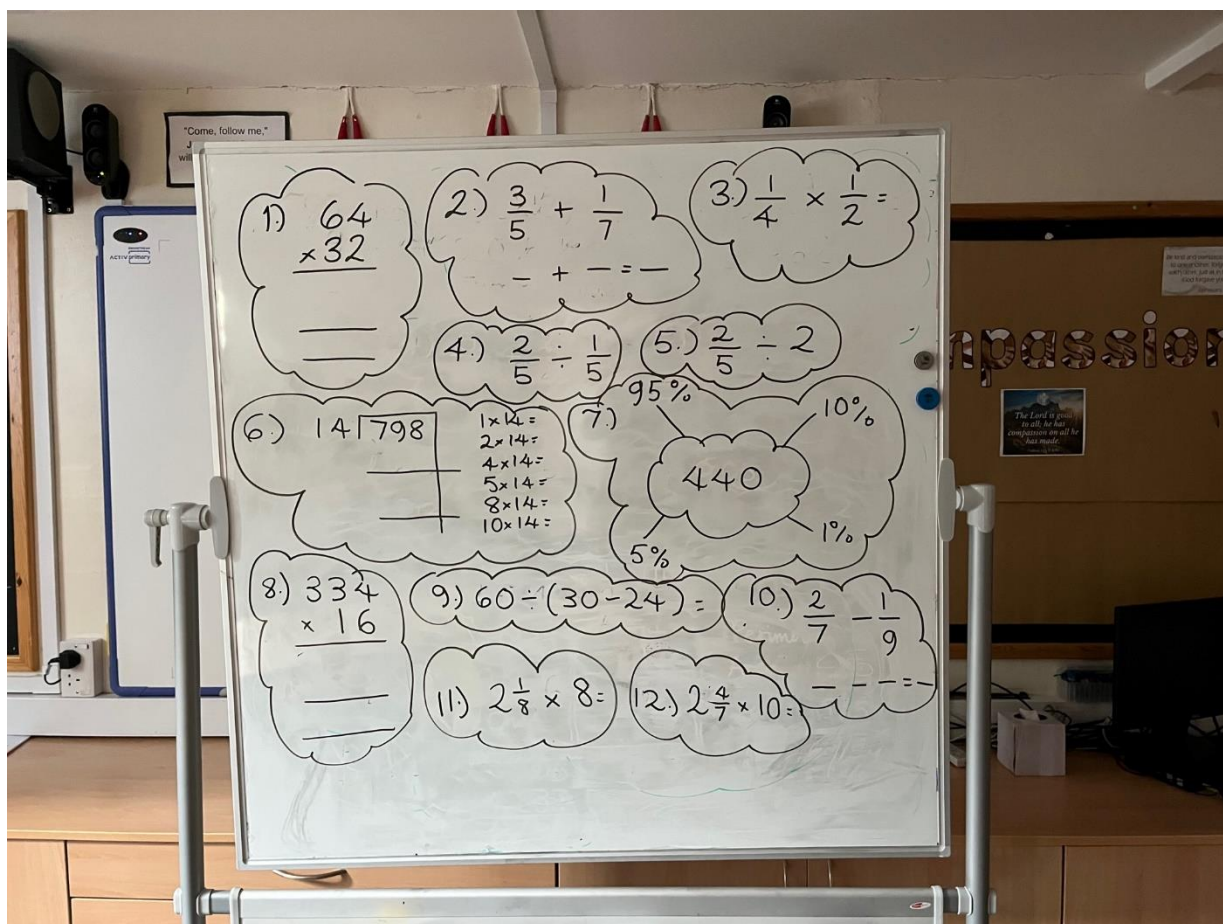 "Come, follow me,"
ACTIV primary
1.) 64
×32
2.) 3/5 + 1/7
_ + _ = _
3.) 1/4 × 1/2 =
4.) 2/5 ÷ 1/5
5.) 2/5 ÷ 2
6.) 14 798
1×14=
2×14=
4×14=
5×14=
8×14=
10×14=
7.) 95%
10%
440
5%
1%
8.) 334
× 16
9.) 60 ÷ (30 - 24) =
10.) 2/7 - 1/9
_ - _ = _
11.) 2 1/8 × 8 =
12.) 2 4/7 × 10 =
mpassion
The Lord is good
to all; he has
compassion on all he
has made.